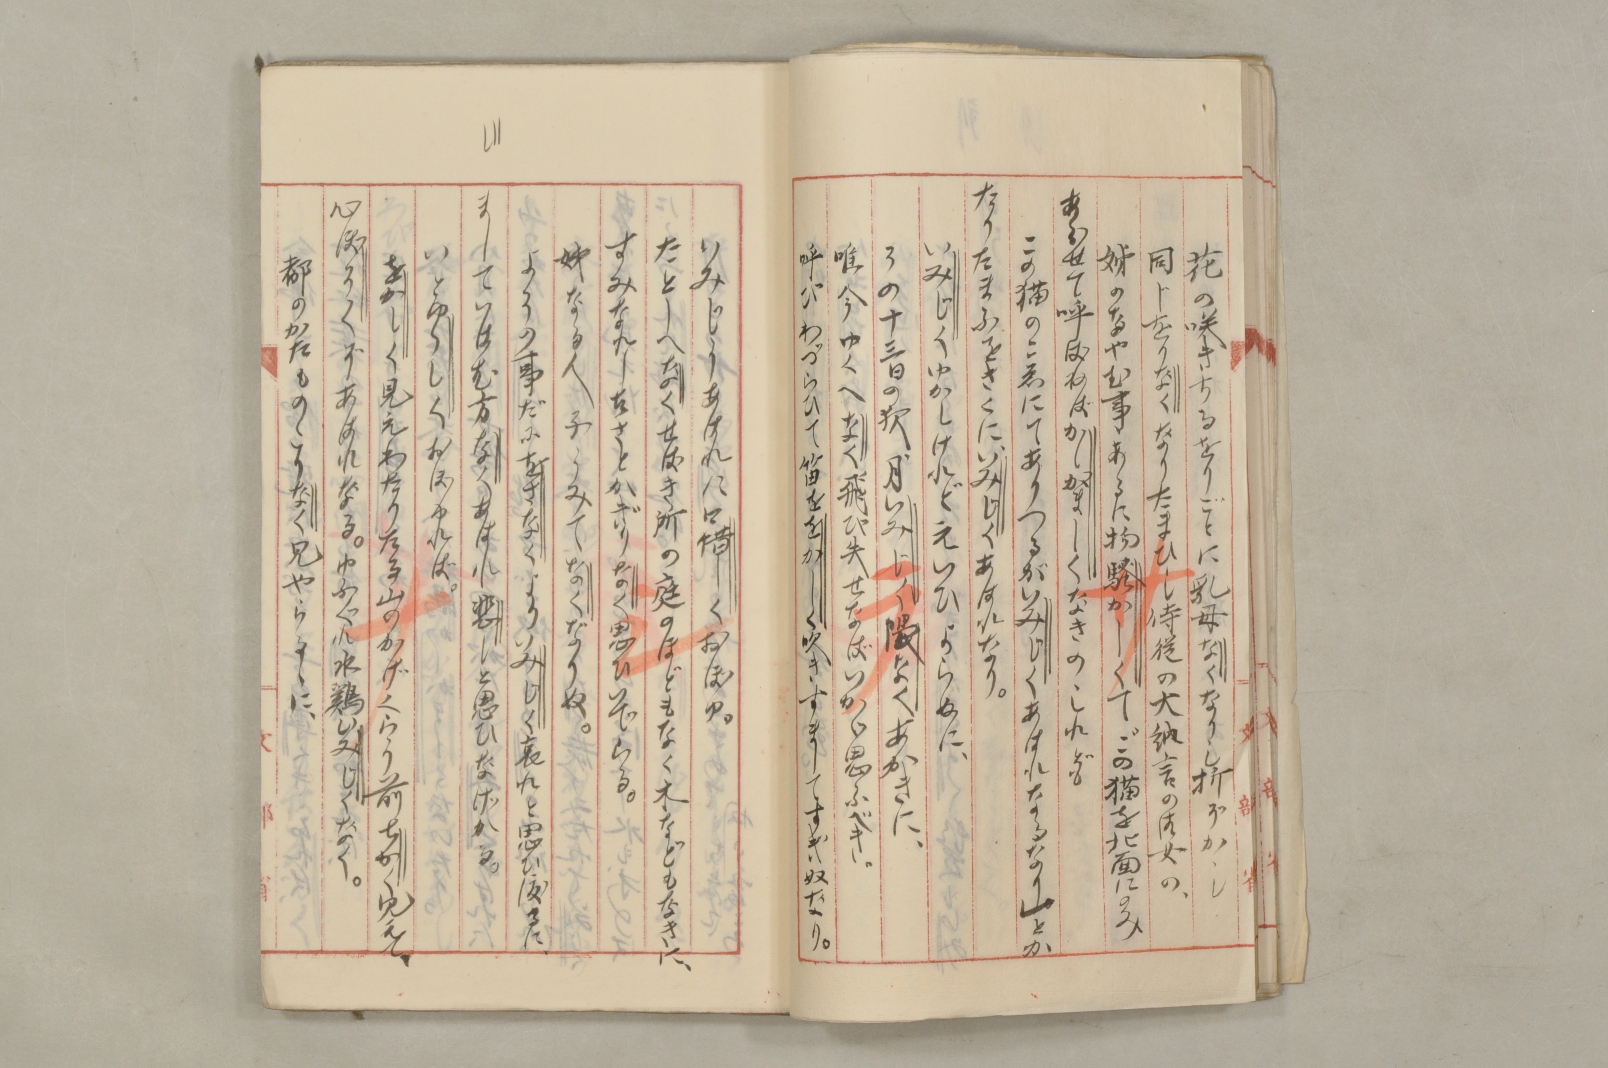 花の咲きちるをりごとに乳母なくなりし折ぞかし
同じをりなくなりたまひし侍従の大納言の法女の、
姉のなやむ事あるに物騒がしくて、この猫を北面にのみ
あらせて呼ばねばかしがましくなきのゝしれども
この猫のこゑにてありつるがいみじくあはれなるなり山とか
たりたまふをきくに、いみじくあはれなり。
いみじくゆかしけれどえいひよらぬに、
その十三日の夜、月いみじく隈なくあかきに、
唯今ゆくへなく飛び失せなばいかゞ思ふべき。
呼びわづらひて笛ををかしく吹きすましてすぎぬなり。
いみじうあはれに口惜しくおぼゆ。
たとしへなくせばき所の庭のほどもなく木などもなきに、
すみなれしふるさとかぎりなく思ひいでらる。
姉なる人、子うみてなくなりぬ。
よその事だにをさなくよりいみじく哀れと思ひ渡るに、
ましていはむ方なくあはれ悲しと思ひなげかる。
いとゆゝしくおぼゆれば。
をかしく見えわたりたる山のかげくらう前ちかう見えて、
心ぼそくぞあはれなる。ゆふぐれ水鶏いみじくなく。
都のかたものこりなく見やらるゝに、
文部省